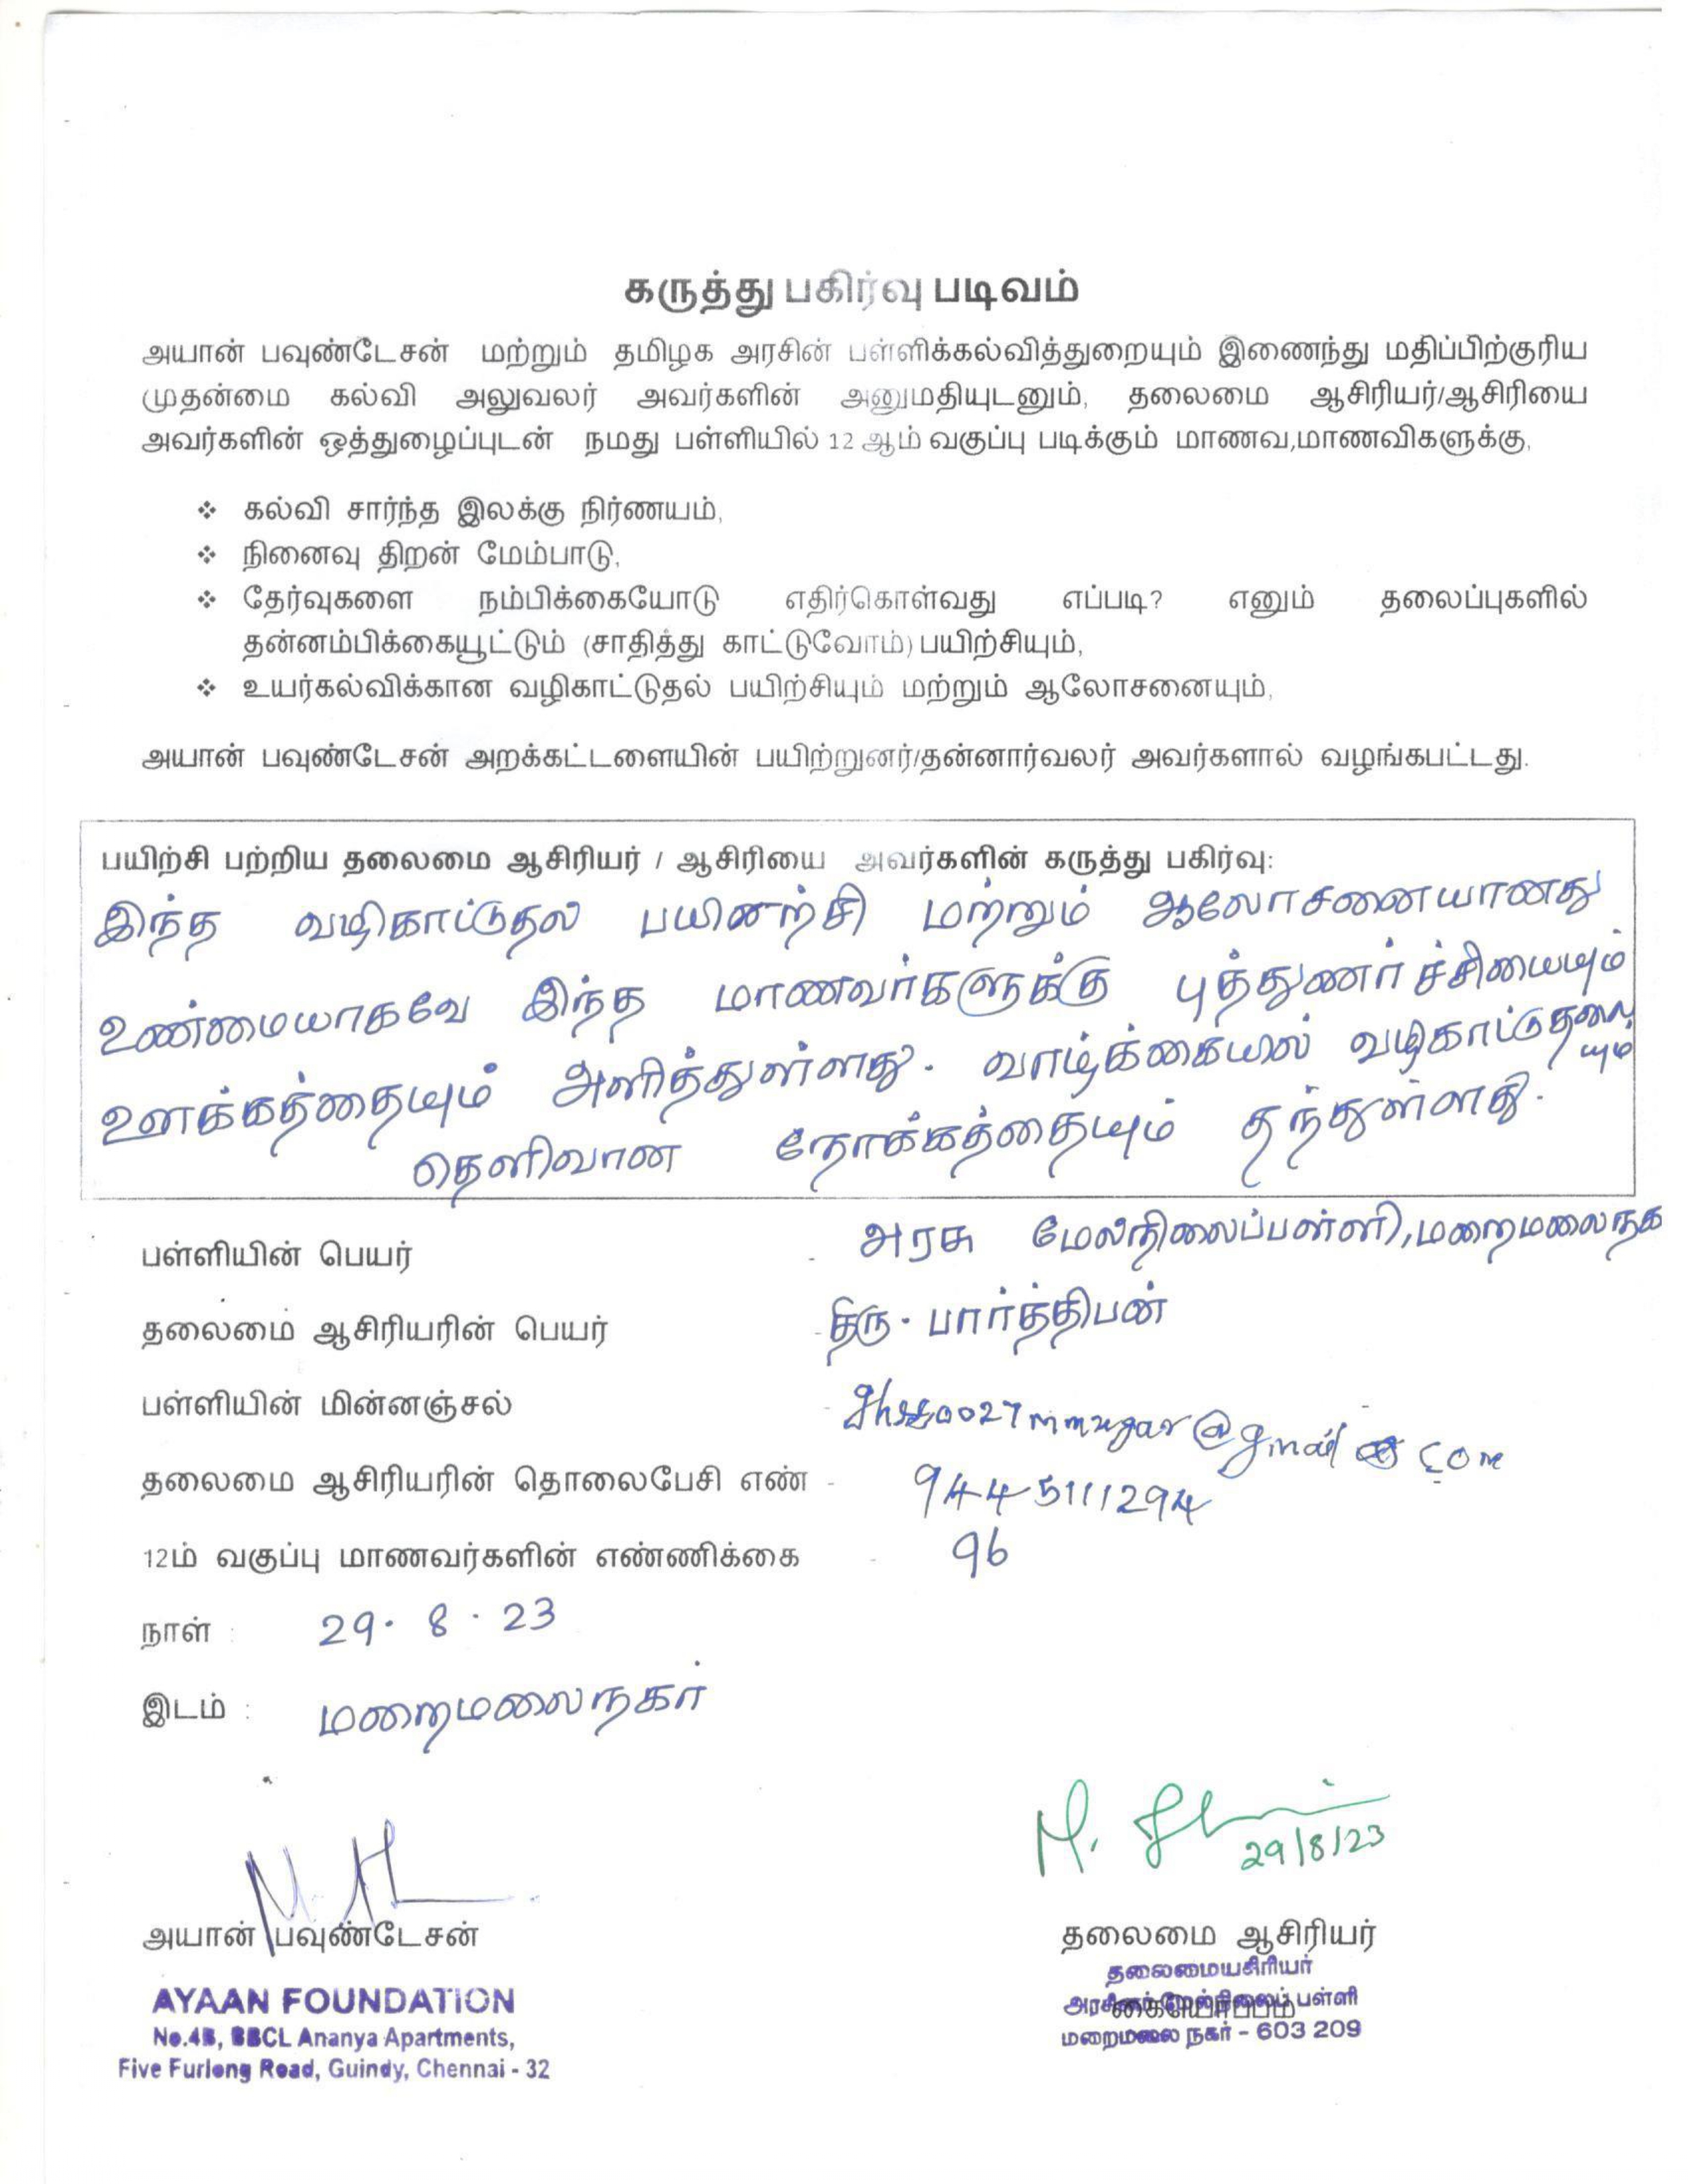 கருத்து பகிர்வு படிவம்
அயான் பவுண்டேசன் மற்றும் தமிழக அரசின் பள்ளிக்கல்வித்துறையும் இணைந்து மதிப்பிற்குரிய
முதன்மை கல்வி அலுவலர் அவர்களின் அனுமதியுடனும், தலைமை ஆசிரியர்/ஆசிரியை
அவர்களின் ஒத்துழைப்புடன் நமது பள்ளியில் 12 ஆம் வகுப்பு படிக்கும் மாணவ,மாணவிகளுக்கு,
❖ கல்வி சார்ந்த இலக்கு நிர்ணயம்,
❖ நினைவு திறன் மேம்பாடு,
❖ தேர்வுகளை நம்பிக்கையோடு எதிர்கொள்வது எப்படி? எனும் தலைப்புகளில்
தன்னம்பிக்கையூட்டும் (சாதித்து காட்டுவோம்) பயிற்சியும்,
❖ உயர்கல்விக்கான வழிகாட்டுதல் பயிற்சியும் மற்றும் ஆலோசனையும்,
அயான் பவுண்டேசன் அறக்கட்டளையின் பயிற்றுனர்/தன்னார்வலர் அவர்களால் வழங்கபட்டது.
பயிற்சி பற்றிய தலைமை ஆசிரியர் / ஆசிரியை அவர்களின் கருத்து பகிர்வு:
இந்த வழிகாட்டுதல் மற்றும் ஆலோசனையானது
உண்மையாகவே இந்த மாணவர்களுக்கு புத்துணர்ச்சியையும்
ஊக்கத்தையும் அளித்துள்ளது. வாழ்க்கையில் வழிகாட்டுதலை
யும்
தெளிவான நோக்கத்தையும் தந்துள்ளது.
பள்ளியின் பெயர் - அரசு மேல்நிலைப்பள்ளி,மறைமலைநக
தலைமை ஆசிரியரின் பெயர் - திரு. பார்த்திபன்
பள்ளியின் மின்னஞ்சல் -
தலைமை ஆசிரியரின் தொலைபேசி எண் - 94451111294
12ம் வகுப்பு மாணவர்களின் எண்ணிக்கை - 96
நாள் : 29. 8. 23
இடம் : மறைமலைநகர்
29/8/23
அயான் பவுண்டேசன் தலைமை ஆசிரியர்
AYAAN FOUNDATION
No.4B, BBCL Ananya Apartments,
Five Furlong Road, Guindy, Chennai - 32
தலைமையசிரியர்
அரசினர் மேல்நிலைப் பள்ளி
கையொப்பம்
மறைமலை நகர் - 603 209